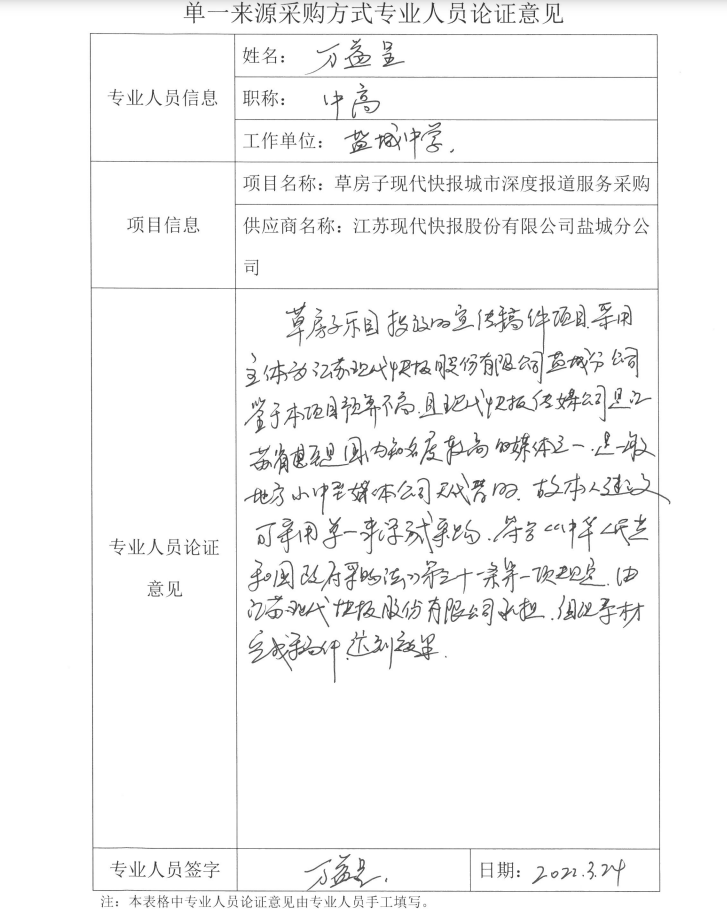 单一来源采购方式专业人员论证意见
专业人员信息
姓名：万益呈
职称：中高
工作单位：盐城中学.
项目信息
项目名称：草房子现代快报城市深度报道服务采购
供应商名称：江苏现代快报股份有限公司盐城分公
司
专业人员论证
意见
草房子乐园投放的宣传稿件项目采用
主体为江苏现代快报股份有限公司盐城分公司
鉴于本项目预算不高,且现代快报传媒公司是江
苏省甚至是国内知名度较高的媒体之一.是一般
地方小中型媒体公司代替的.故本人建议
可采用单一来源式采购.符合《中华人民共
和国政府采购法》第三十一条第一项规定.由
江苏现代快报股份有限公司承担.组织素材
完成稿件.达到效果.
专业人员签字
万益呈.
日期：2022.3.24
注：本表格中专业人员论证意见由专业人员手工填写。